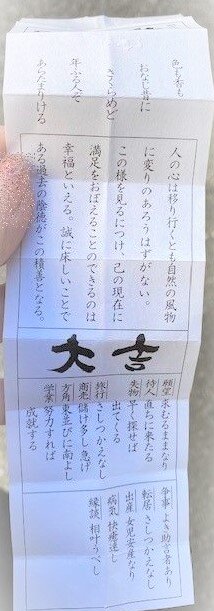 色も香も
おなじ昔に
さくらめど
年ふる人ぞ
あらたまりける
人の心は移り行くとも自然の風物
に変りのあろうはずがない。
この様を見るにつけ、己の現在に
満足をおぼえることのできるのは
幸福といえる。誠に床しいことで
ある過去の陰徳がこの積善となる。
大吉
願望 のぞむままなり
待人 直ちに来たる
失物 早く探せば
出てくる
旅行 さしつかえなし
商売 儲け多し急げ
方角 東並びに南よし
学業 努力すれば
成就する
争事 よき助言者あり
転居 さしつかえなし
出産 女児安産なり
病気 快癒速し
縁談 相叶うべし